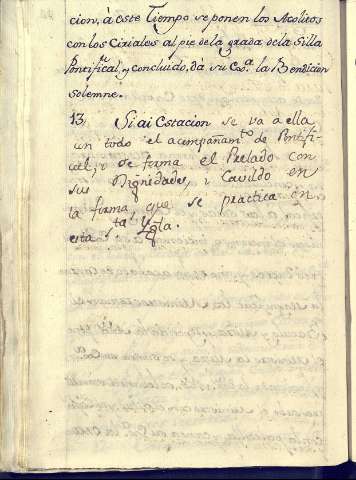 cion, à este Tiempo se ponen los Acolitos
con los Ciriales al pie de la grada de la Silla
Pontifical, y concluido, dà su Es.ª la Bendicion
solemne.
13. Si ai Estacion se va a ella
un todo el acompañam.to de Pontifi-
cal, i de forma el Prelado con
sus Dignidades, i Cavildo en
la forma que se practica en
esta S.ta Ygla.